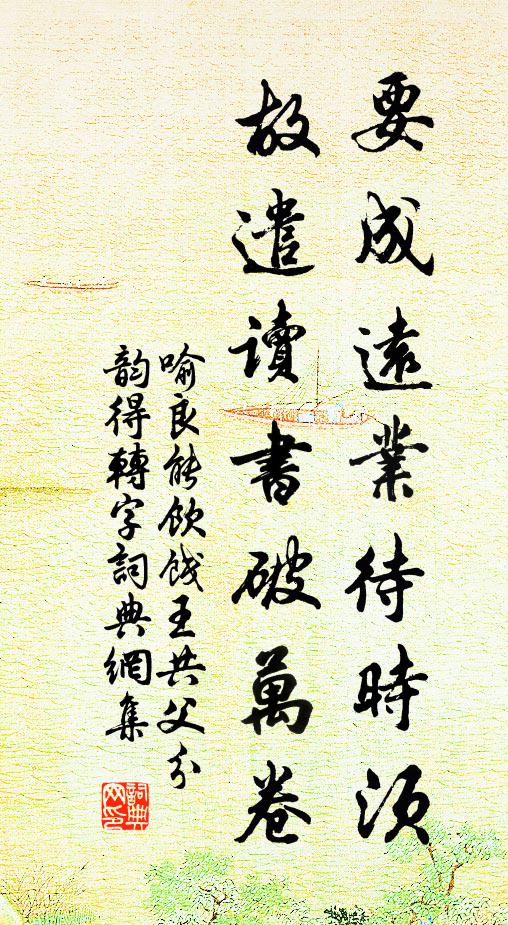 要成遠業待時須
故遣讀書破萬卷
喻良能飲餞王共父分
韵得轉字詞典網集
詞典
网印